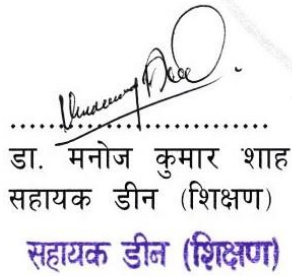 डा. मनोज कुमार शाह
सहायक डीन (शिक्षण)
सहायक डीन (शिक्षण)